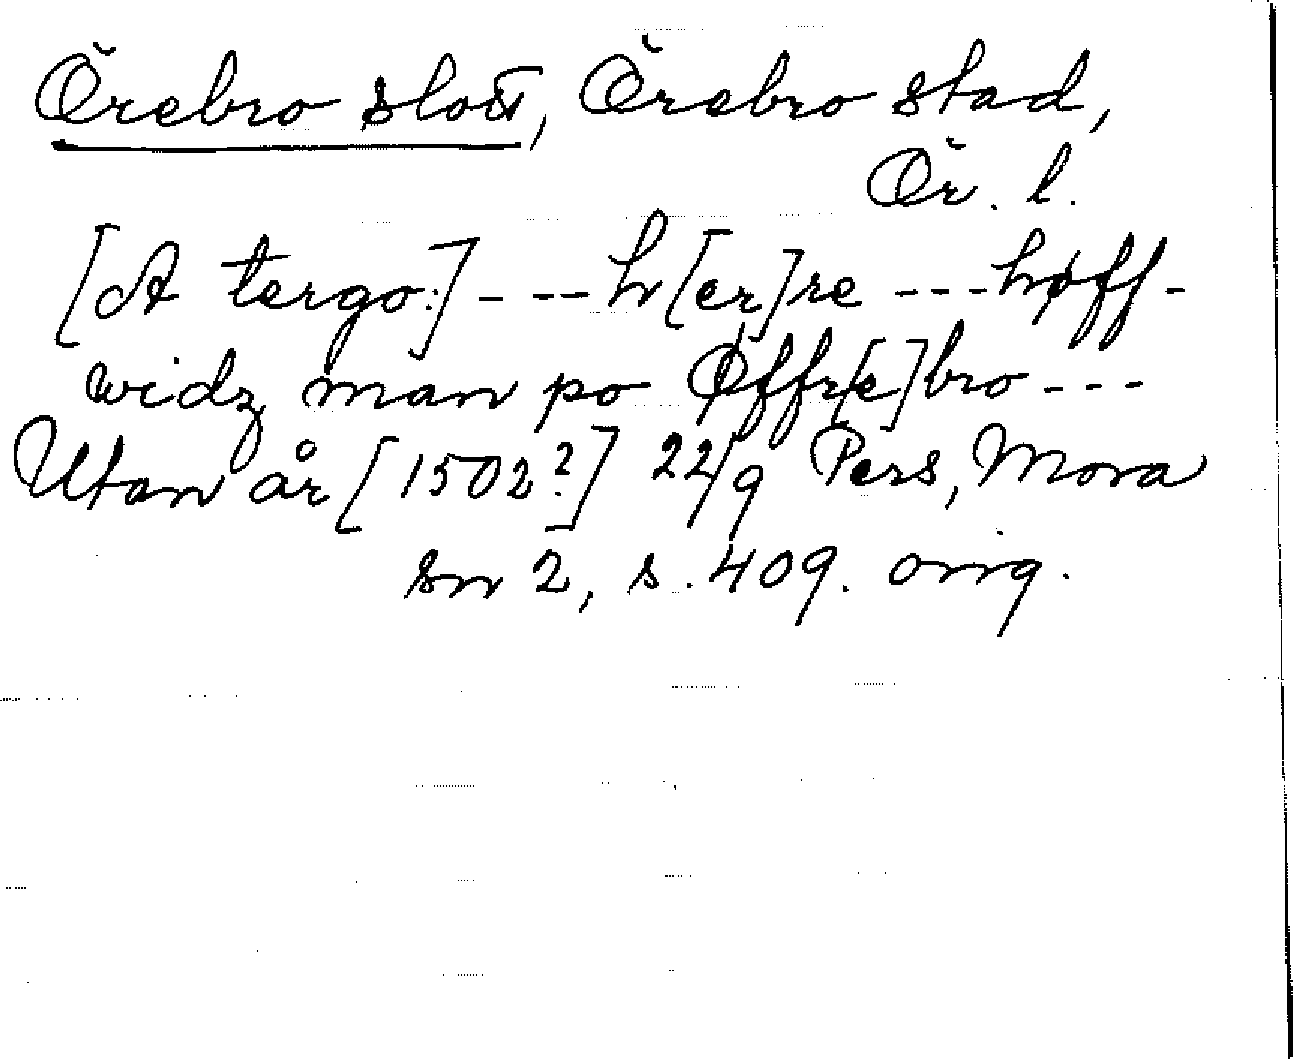 Örebro slott, Örebro stad,
Ör. l.
[A tergo:] - --- h[er]re --- høff-
widz man po Øffr[e]bro ---
Utan år [1502?] 22/9 Pers, Mora
sn 2, s. 409. orig.